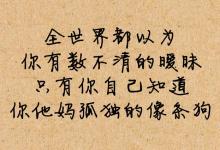 全世界都以为
你有数不清的暧昧
只有你自己知道
你他妈孤独的像条狗